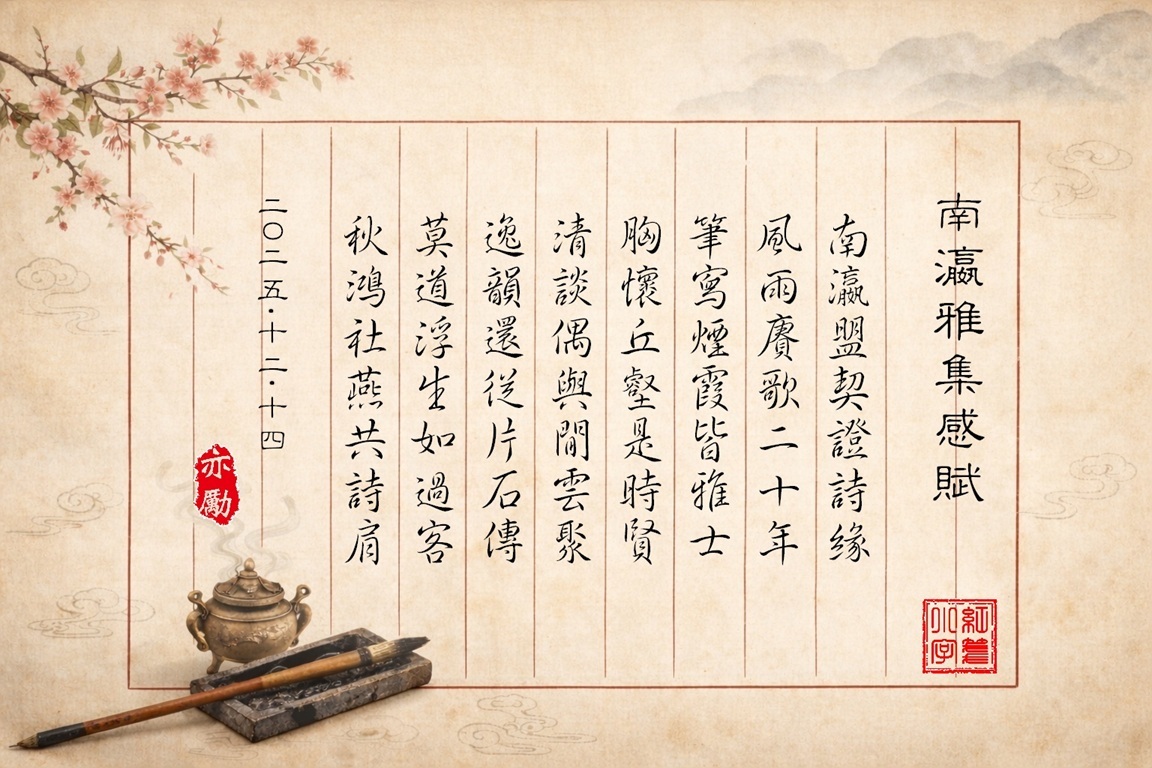 南瀛雅集感賦
南瀛盟契證詩緣
風雨賡歌二十年
筆寫煙霞皆雅士
胸懷丘壑是時賢
清談偶與閒雲聚
逸韻還從片石傳
莫道浮生如過客
秋鴻社燕共詩肩
二〇二五.十二.十四
亦勵